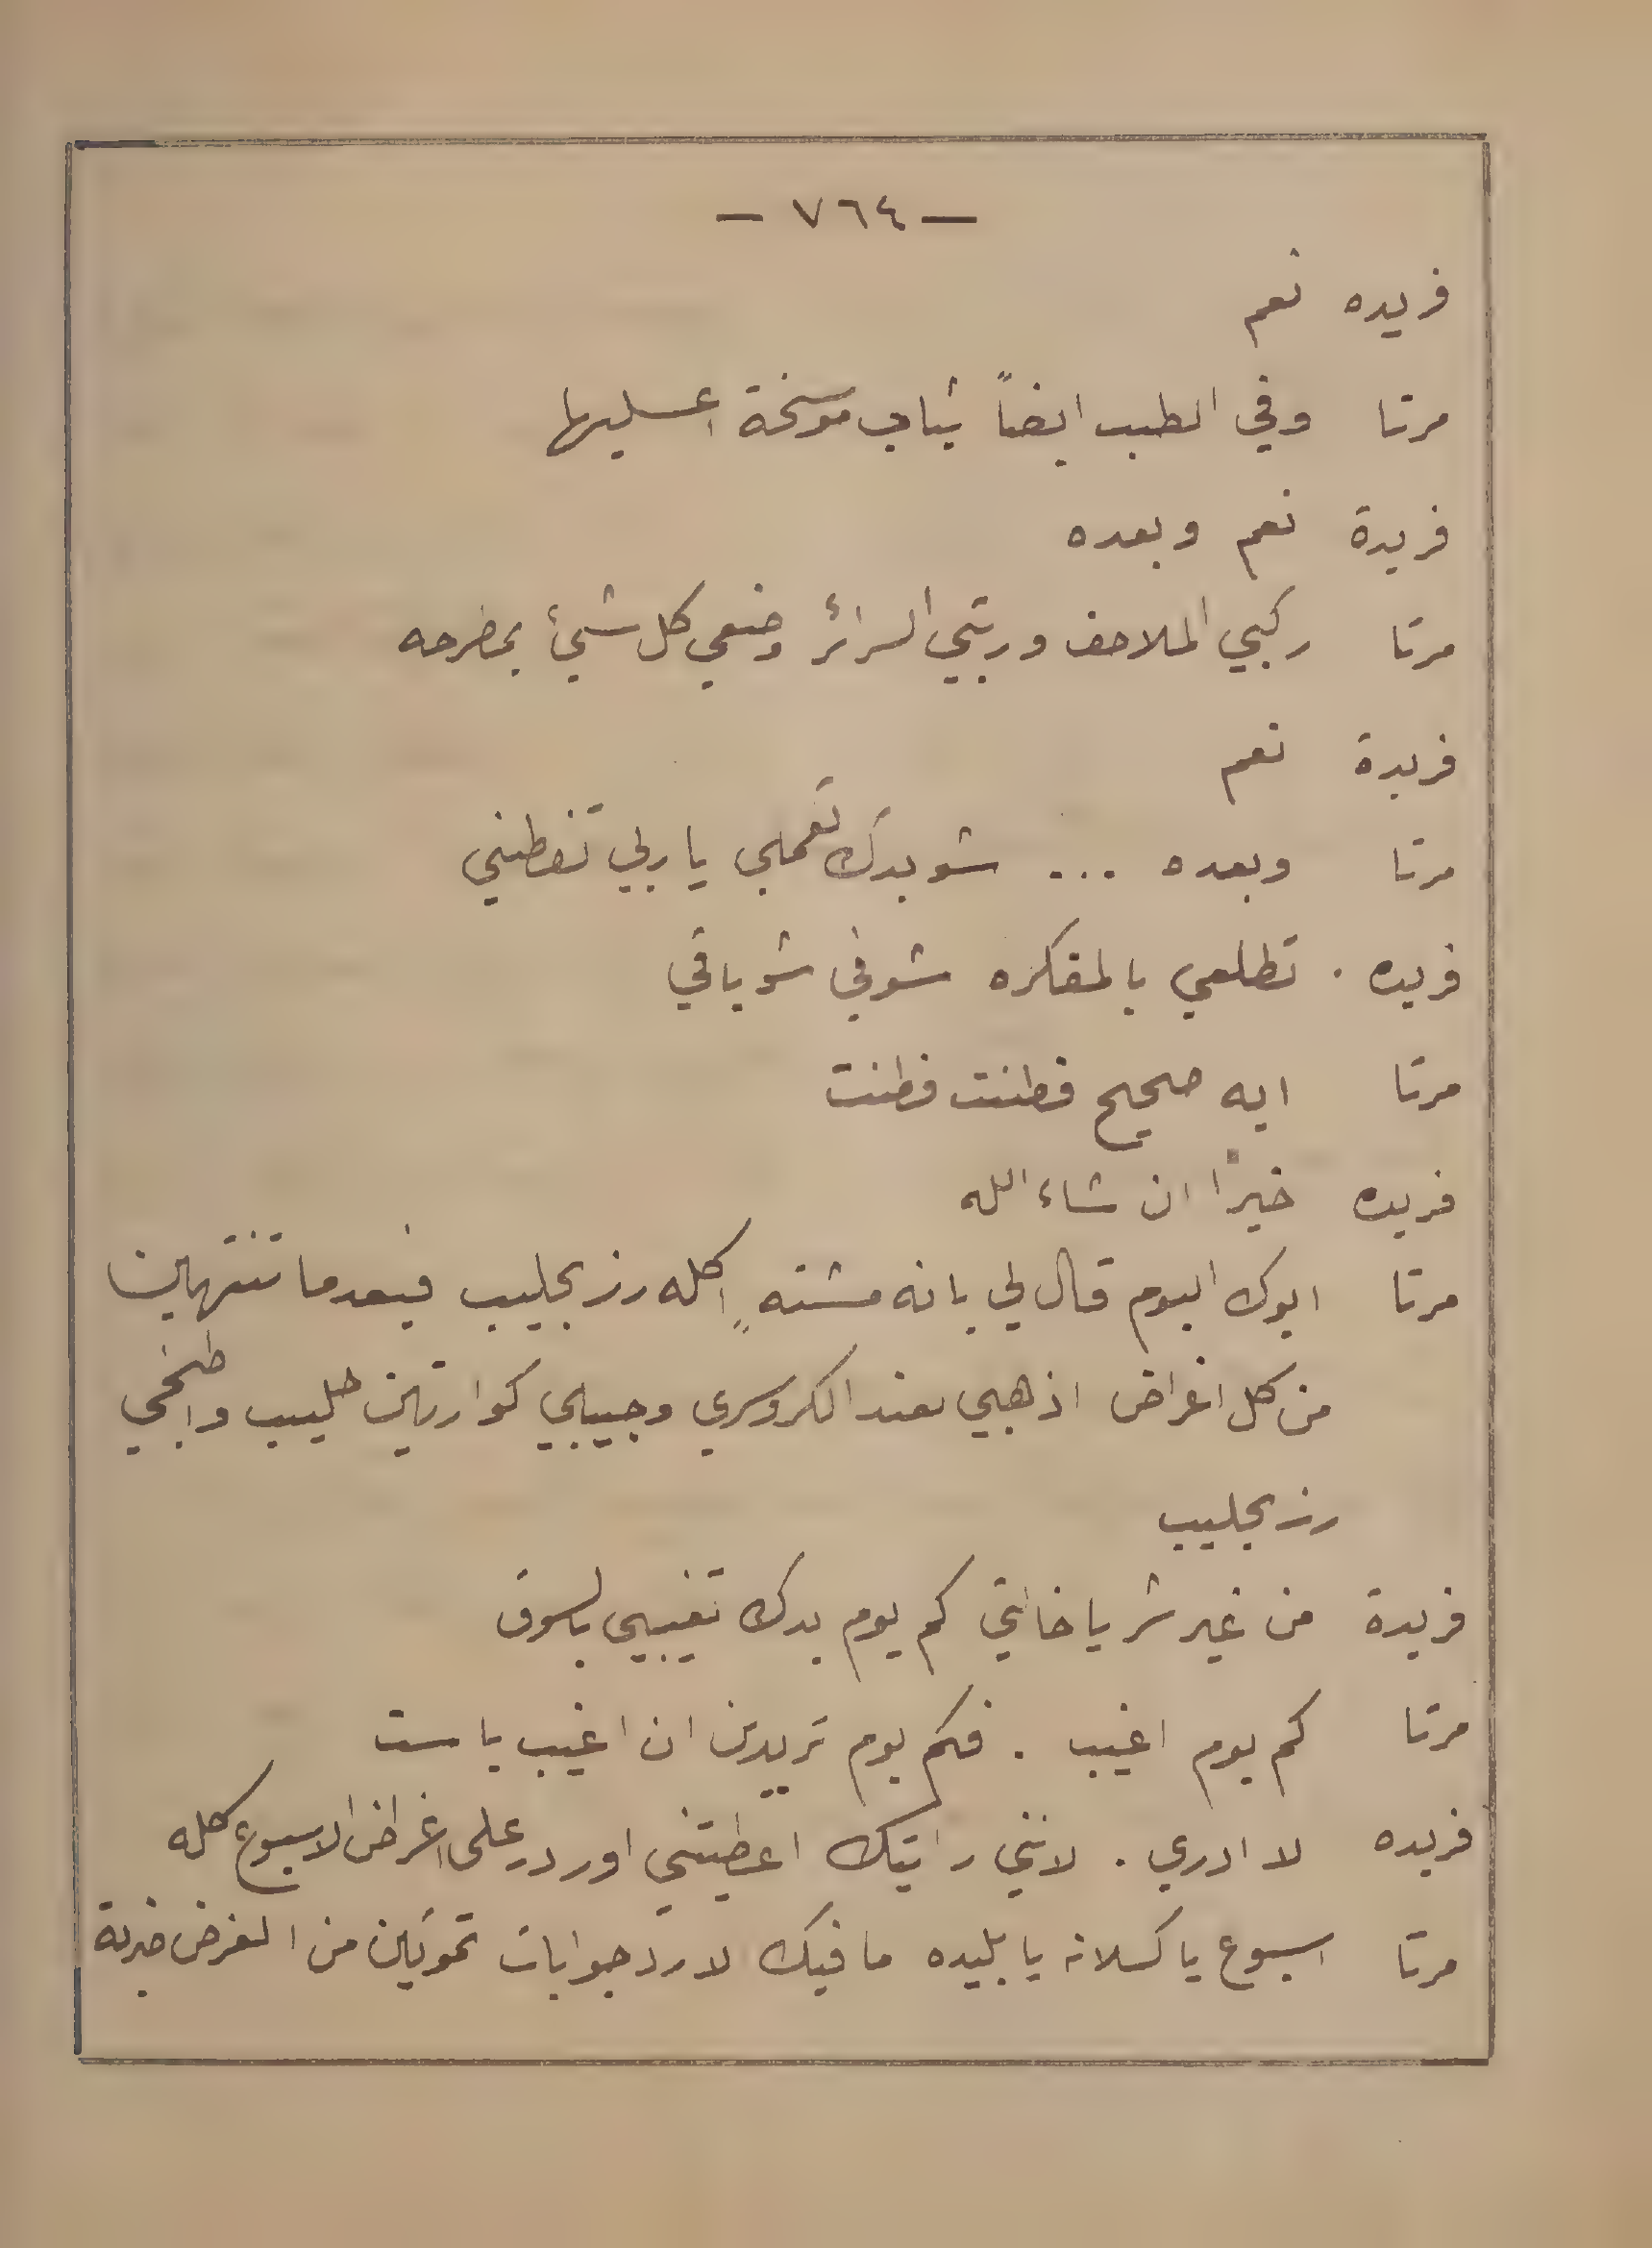 — ٧٦٤ —
فريده نعم
مرتا وفي الطبب ايضاً ثياب موسخة اغسليها
فريدة نعم وبعده
مرتا ركبي الملاحف ورتبي السرائر وضعي كل شيئ بمطرحه
فريدة نعم
مرتا وبعده ... شو بدك تعملي يا ربي تفطني
فريده . تطلعي بالمفكره شوفي شو باقي
مرتا ايه صحيح فطنت فطنت
فريده خيرًا ان شاء الله
مرتا ابوك اليوم قال لي بانه مشتهٍ اكله رز بحليب فبعدما تنتهين
من كل اغراض اذهبي لعند الكروسري وجيبلي كوارتين حليب واطبخي
رز بحليب
فريدة من غير شر يا خالتي كم يوم بدك تغيبي بالسوق
مرتا كم يوم اغيب . فكم يوم تريدين ان اغيب يا ست
فريده لا ادري . لانني رايتك اعطيتني اوردر على اغراض الاسبوع كله
مرتا اسبوع يا كسلانه يا بليده ما فيك لا رد جوابات تموتين من الغرض ضربة